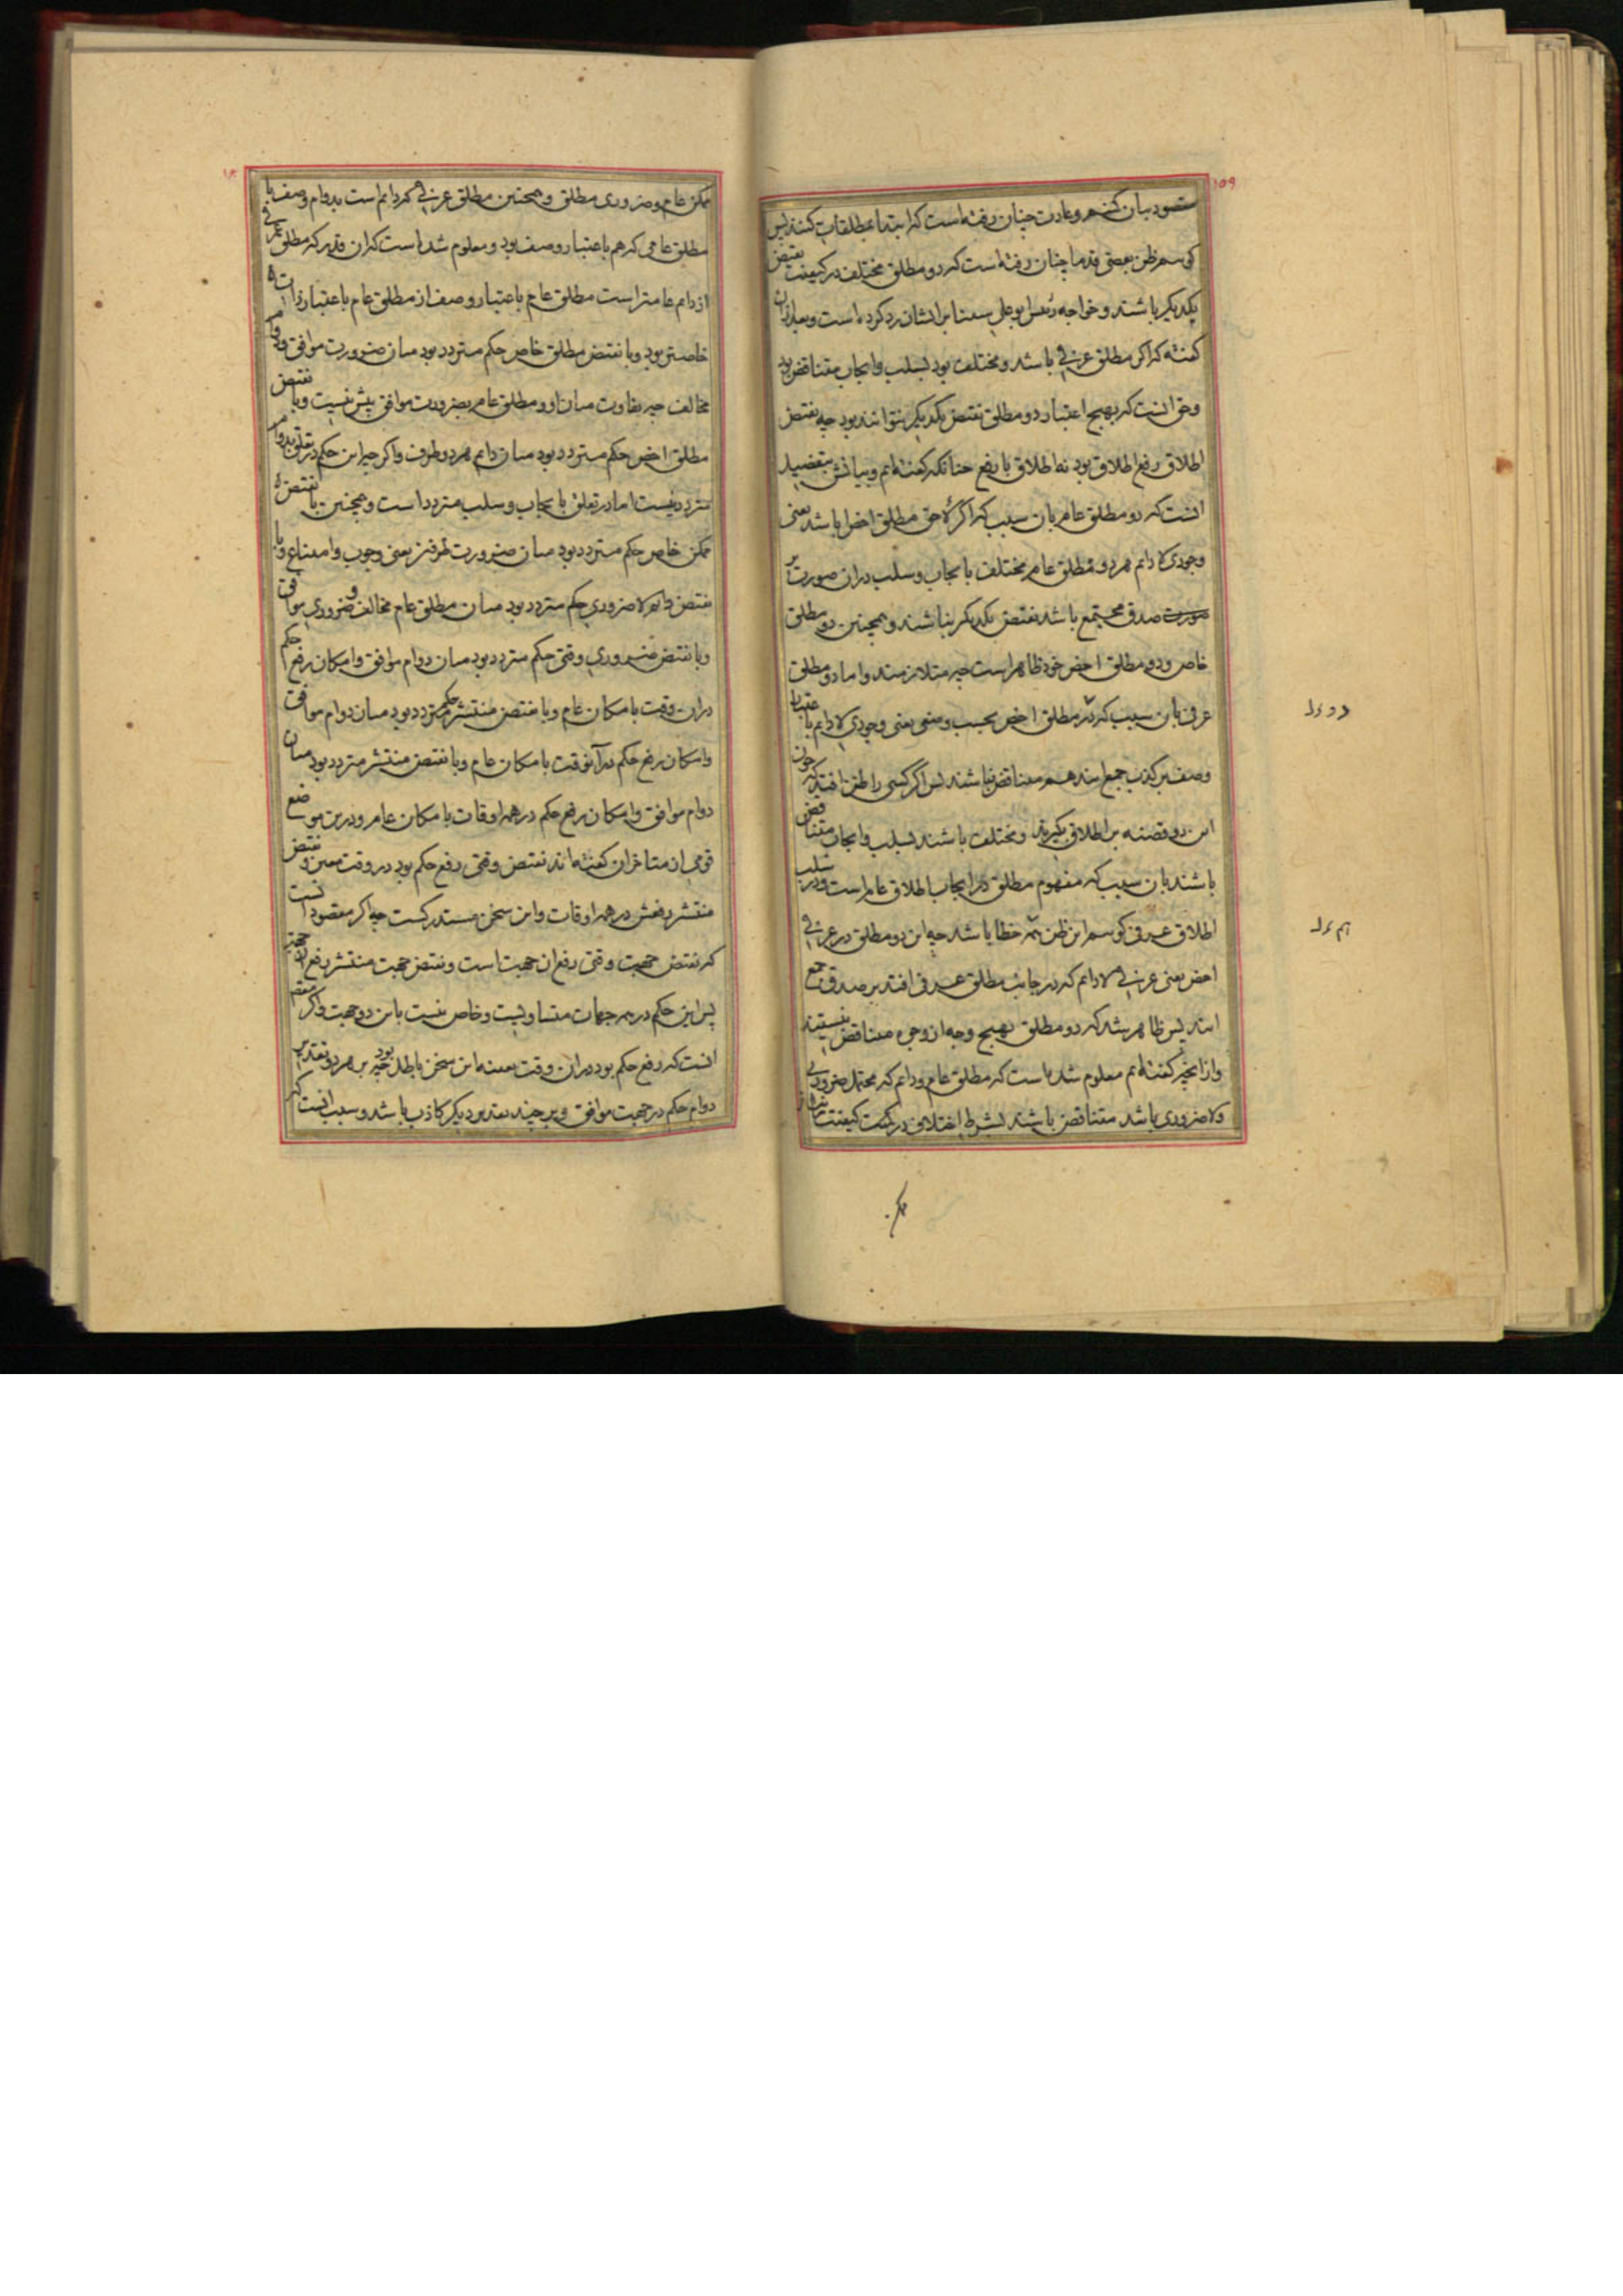 ۱۵۹
مقصود بیان کنیم و عادت چنان رفته است که ابتدا بمطلقات کنند پس
کوییم ظن بعضی قدما چنان رفته است که دو مطلق مختلف در کیفیت نقیض
یکدیگر باشند و خواجه رئیس ابوعلی سینا بر ایشان رد کرده است و بعد ازان
کفته که اکر مطلق عرفی باشد و مختلف بود بسلب و ایجاب متناقض بود
و حق انست که بهیچ اعتبار دو مطلق نقیض یکدیگر نتوانند بود چه نقیض
اطلاق رفع اطلاق بود نه اطلاق با رفع چنانکه کفته‌ایم و بیانش بتفصیل
انست که دو مطلق عام بان سبب که اکر لاحق مطلق اخص باشد یعنی
وجودی لادایم هر دو مطلق عام مختلف بایجاب و سلب دران صورت بر
صورت صدق مجتمع باشد نقیض یکدیگر نباشند و همچنین دو مطلق
خاص و دو مطلق اخص خود ظاهر است چه متلازمند و اما دو مطلق
عرفی بان سبب که در مطلق اخص بحسب وصفی یعنی وجودی لادایم باعتبار
وصف بر کذب جمع ایند هم متناقض نباشند پس اکر کسی را ظن افتد که چون
این دو قضیه بر اطلاق بکیرند و مختلف باشند بسلب و ایجاب متناقض
باشند بان سبب که مفهوم مطلق در ایجاب اطلاق عام است و در سلب
اطلاق عرفی کوییم این ظن هم خطا باشد چه این دو مطلق در عرفی
اخص یعنی عرفی لادایم که در جانب مطلق عرفی افتد بر صدق جمع
ایند پس ظاهر شد که دو مطلق بهیچ وجه از وجوه متناقض نیستند
و از انچه کفته‌ایم معلوم شده است که مطلق عام و دایم که محتمل ضروری
و لاضروری باشد متناقض باشند بشرط اختلاف در کمیت کیفیت
دو بدل
هم بدل
ممکن عام و ضروری مطلق و همچنین مطلق عرفی که دایم است بدوام وصف با
مطلق عامی که هم باعتبار وصف بود و معلوم شده است که ان قدر که مطلق عرفی
از دایم عامتر است مطلق عام باعتبار وصف از مطلق عام باعتبار ذات
خاصتر بود و با نقیض مطلق خاص حکم متردد بود میان ضرورت موافق و دوام
مخالف چه تفاوت میان او و مطلق عام بضرورت موافق بیش نیست و با نقیض
مطلق اخص حکم متردد بود میان دایم هر دو طرف و اکر چه این حکم در تعلق بدوام
متردد نیست اما در تعلق بایجاب و سلب متردد است و همچنین با نقیض
ممکن خاص حکم متردد بود میان ضرورت طرفین یعنی وجوب و امتناع و با
نقیض دایم لاضروری حکم متردد بود میان مطلق عام مخالف و ضروری موافق
و با نقیض ضروری وقتی حکم متردد بود میان دوام موافق و امکان رفع حکم
دران وقت بامکان عام و با نقیض منتشر حکم متردد بود میان دوام موافق
و امکان رفع حکم در آنوقت بامکان عام و با نقیض منتشر متردد بود میان
دوام موافق و امکان رفع حکم در همه اوقات بامکان عام و درین موضع
قومی از متاخران کفته‌اند نقیض وقتی رفع حکم بود در وقت معین و نقیض
منتشر رفعش در همه اوقات و این سخن مستدرکست چه اکر مقصود انست
که نقیض جهت وقتی رفع ان جهت است و نقیض جهت منتشر رفع ان جهة
پس این حکم در همه جهات متساویست و خاص نیست باین دو جهت و اکر مقصود
انست که رفع حکم بود دران وقت بعینه این سخن باطل بود چه بر هر دو تقدیر
دوام حکم در جهت موافق و بر چند تقدیر دیکر کاذب باشد و سبب انست که